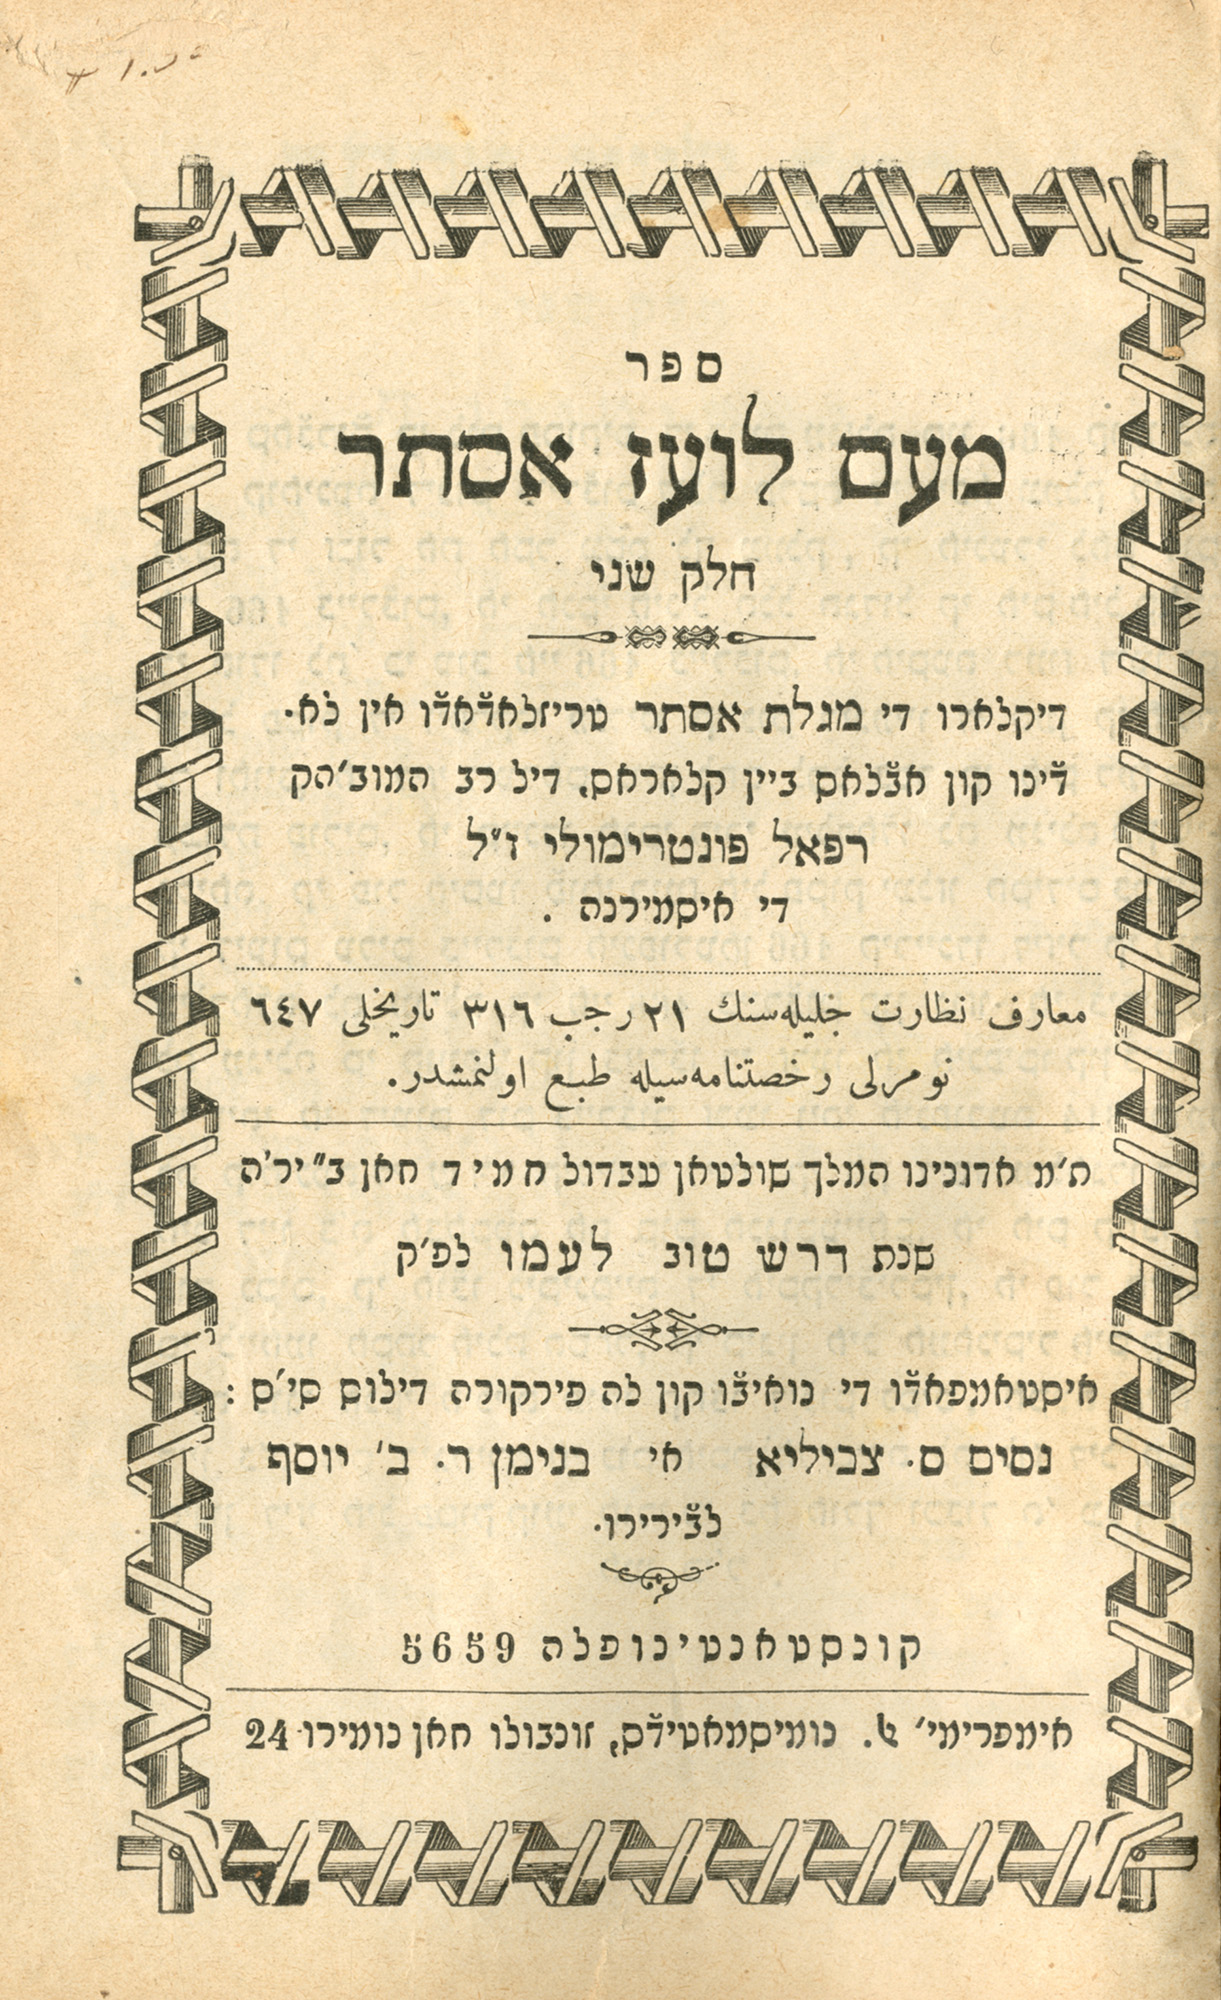 ספר
מעם לועז אסתר
חלק שני
דיקלארו די מגלת אסתר טריזלאד׳אד׳ו אין לא־
ד׳ינו קון אב׳לאס ביין קלאראס, דיל רב המוב׳הק
רפאל פונטרימולי ז״ל
די איסמירנה .
معارف نظارت جليله‌سنك ٢١ رجب ٣١٦ تاريخلى ٦٤٧
نومرلى رخصتنامه‌سيله طبع اولنمشدر.
ת׳מ אדונינו המלך שולטאן עבדול חמיד חאן ב״יר׳ה
שנת דרש טוב לעמו לפ׳ק
איסטאמפאד׳ו די נואיב׳ו קון לה פירקורה דילוס סי׳ס :
נסים ס. צביליא אי בנימן ר. ב׳ יוסף
לב׳רירו.
קונסטאנטינופלה 5659
אימפרימי׳ . נומיסמאטיד׳ס, זונבולו חאן נומירו 24